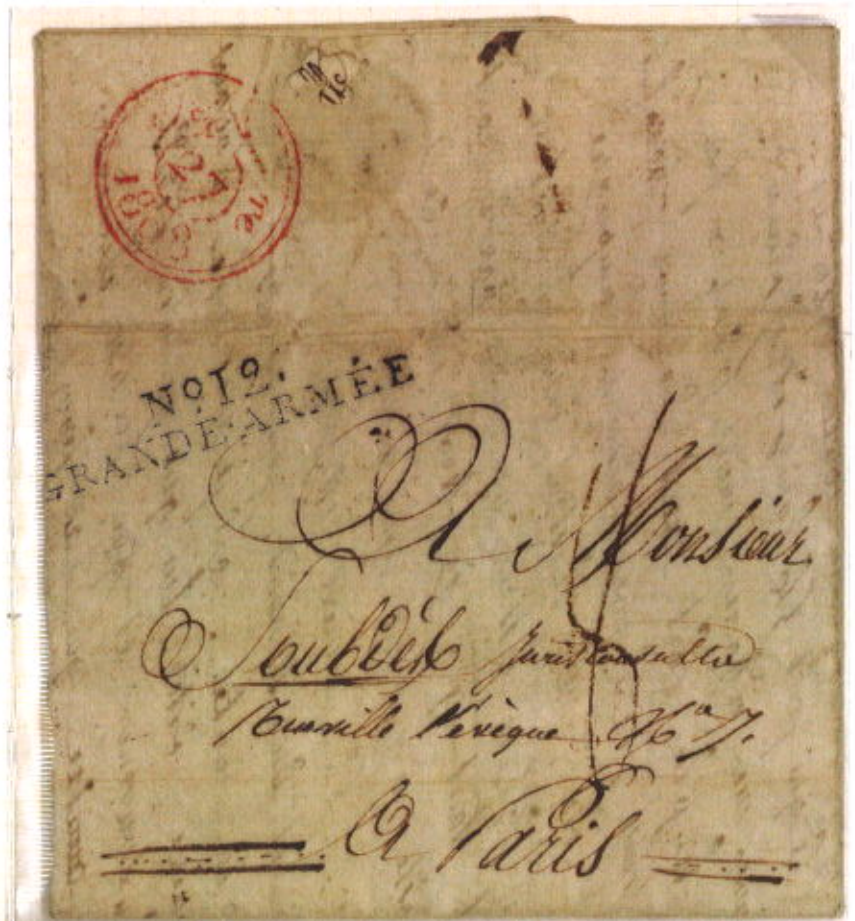 27
180
No 12.
GRANDE ARMÉE
A Monsieur
Soubdès Jurisconsulte
Rue ville l'évèque No 7.
A Paris